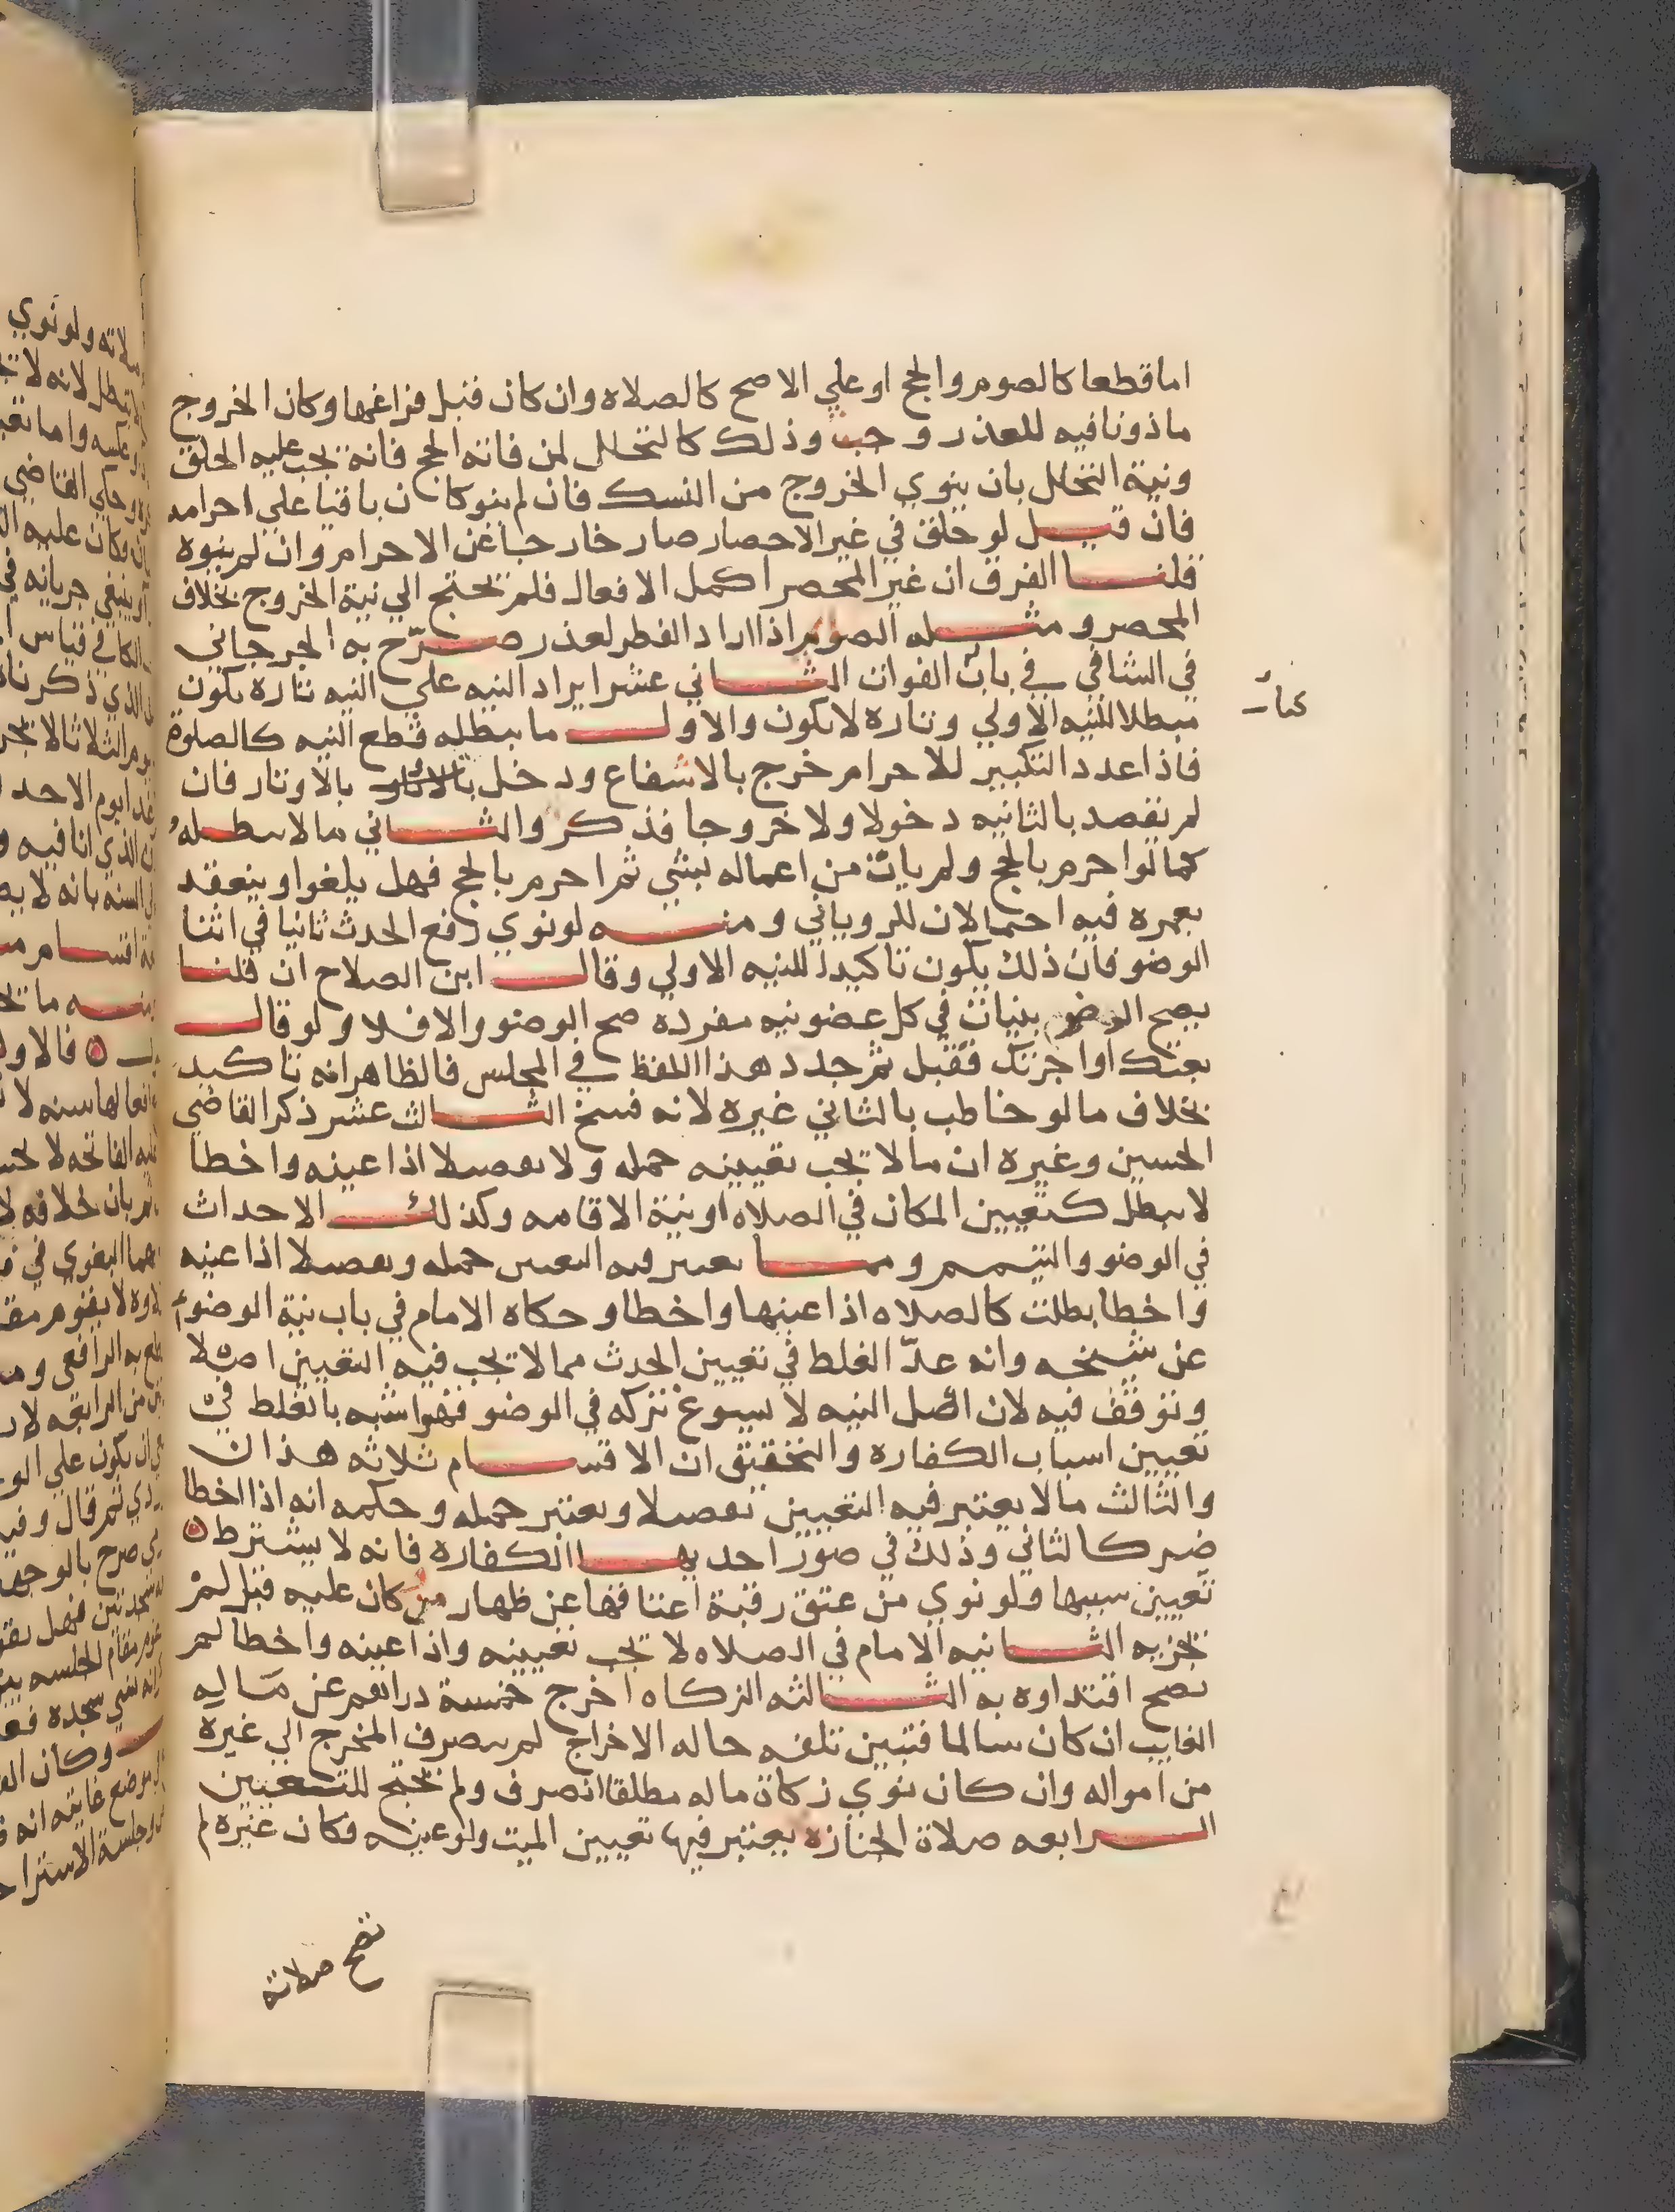 اما قطعا كالصوم والحج او علي الاصح كالصلاه وان كان قبل فراغها وكان الخروج
ماذونا فيه للعذر وجب وذلك كالتحلل لمن فاته الحج فانه يجب عليه الحلق
ونية التحلل بان ينوي الخروج من النسك فان لم ينو كان باقيا علي احرامه
فان قيل لو حلق في غير الاحصار صار خارجا عن الاحرام وان لم ينوه
قلنا الفرق ان غير المحصر اكمل الافعال فلم يحتج الي نية الخروج بخلاف
المحصر ومثله الصوم اذا اراد الفطر لعذر صرّح به الجرجاني
في الشافي في باب الفوات الثاني عشر ايراد النيه علي النيه تاره يكون
مبطلا للنيه الاولي وتاره لا يكون والاول ما يبطله قطع النيه كالصلوة
فاذا عدد التكبير للاحرام خرج بالاشفاع ودخل بالاوتار فان
لم يقصد بالثانيه دخولا ولا خروجا فذكر والثاني ما لا يبطله
كما لو احرم بالحج ولم يات من اعماله بشي ثم احرم بالحج فهل يلغوا وينعقد
بعمره فيه احتمالان للروياني ومنه لو نوي رفع الحدث ثانيا في اثنا
الوضو فان ذلك يكون تاكيدا للنيه الاولي وقال ابن الصلاح ان قلنا
يصح الوضو بنيات في كل عضو نيه مفرده صح الوضو والا فلا ولو قال
بعتك او اجرتك فقبل ثم جدد هذا اللفظ في المجلس فالظاهر انه تاكيد
بخلاف ما لو خاطب بالثاني غيره لانه فسخ الثالث عشر ذكر القاضي
الحسين وغيره ان ما لا يجب تعيينه جمله ولا تفصيلا اذا عينه واخطا
لا يبطل كتعيين المكان في الصلاه او نية الاقامه وكذلك الاحداث
في الوضو والتيمم وما يعتبر فيه التعيين جمله وتفصيلا اذا عينه
واخطا بطلت كالصلاه اذا عينها واخطا وحكاه الامام في باب نية الوضوء
عن شيخه وانه عدّ الغلط في تعيين الحدث مما لا يجب فيه التعيين اصلا
وتوقف فيه لان اصل النيه لا يسوغ تركه في الوضو فهو اشبه بالغلط في
تعيين اسباب الكفاره والتحقيق ان الاقسام ثلاثه هذان
والثالث ما لا يعتبر فيه التعيين تفصيلا ويعتبر جمله وحكمه انه اذا اخطا
ضر كالثاني وذلك في صور احديها الكفاره فانه لا يشترط
تعيين سببها فلو نوي من عتق رقبة اعتاقها عن ظهار من كان عليه قتل لم
يجزيه الثانيه الامام في الصلاه لا يجب تعيينه واذا عينه واخطا لم
يصح اقتداوه به الثالثه الزكاه اخرج خمسة دراهم عن ماله
الغايب ان كان سالما فتبين تلفه حاله الاخراج لم يصرف المخرج الي غيره
من امواله وان كان نوي زكاة ماله مطلقا انصرف ولم يحتج للتعيين
الرابعه صلاة الجنازه يعتبر فيها تعيين الميت ولو عينه فكان غيره لم
تصح صلاته